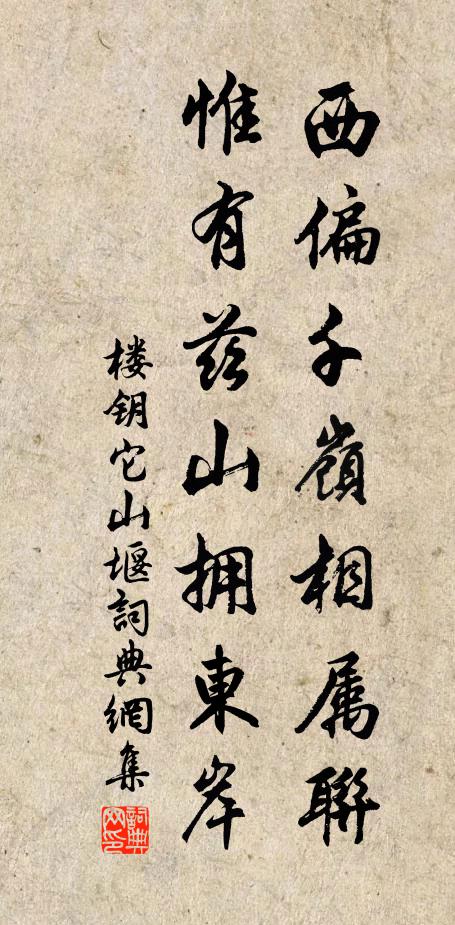 西偏千嶺相属聯
惟有茲山拥東岸
楼钥它山堰詞典網集
詞典网印